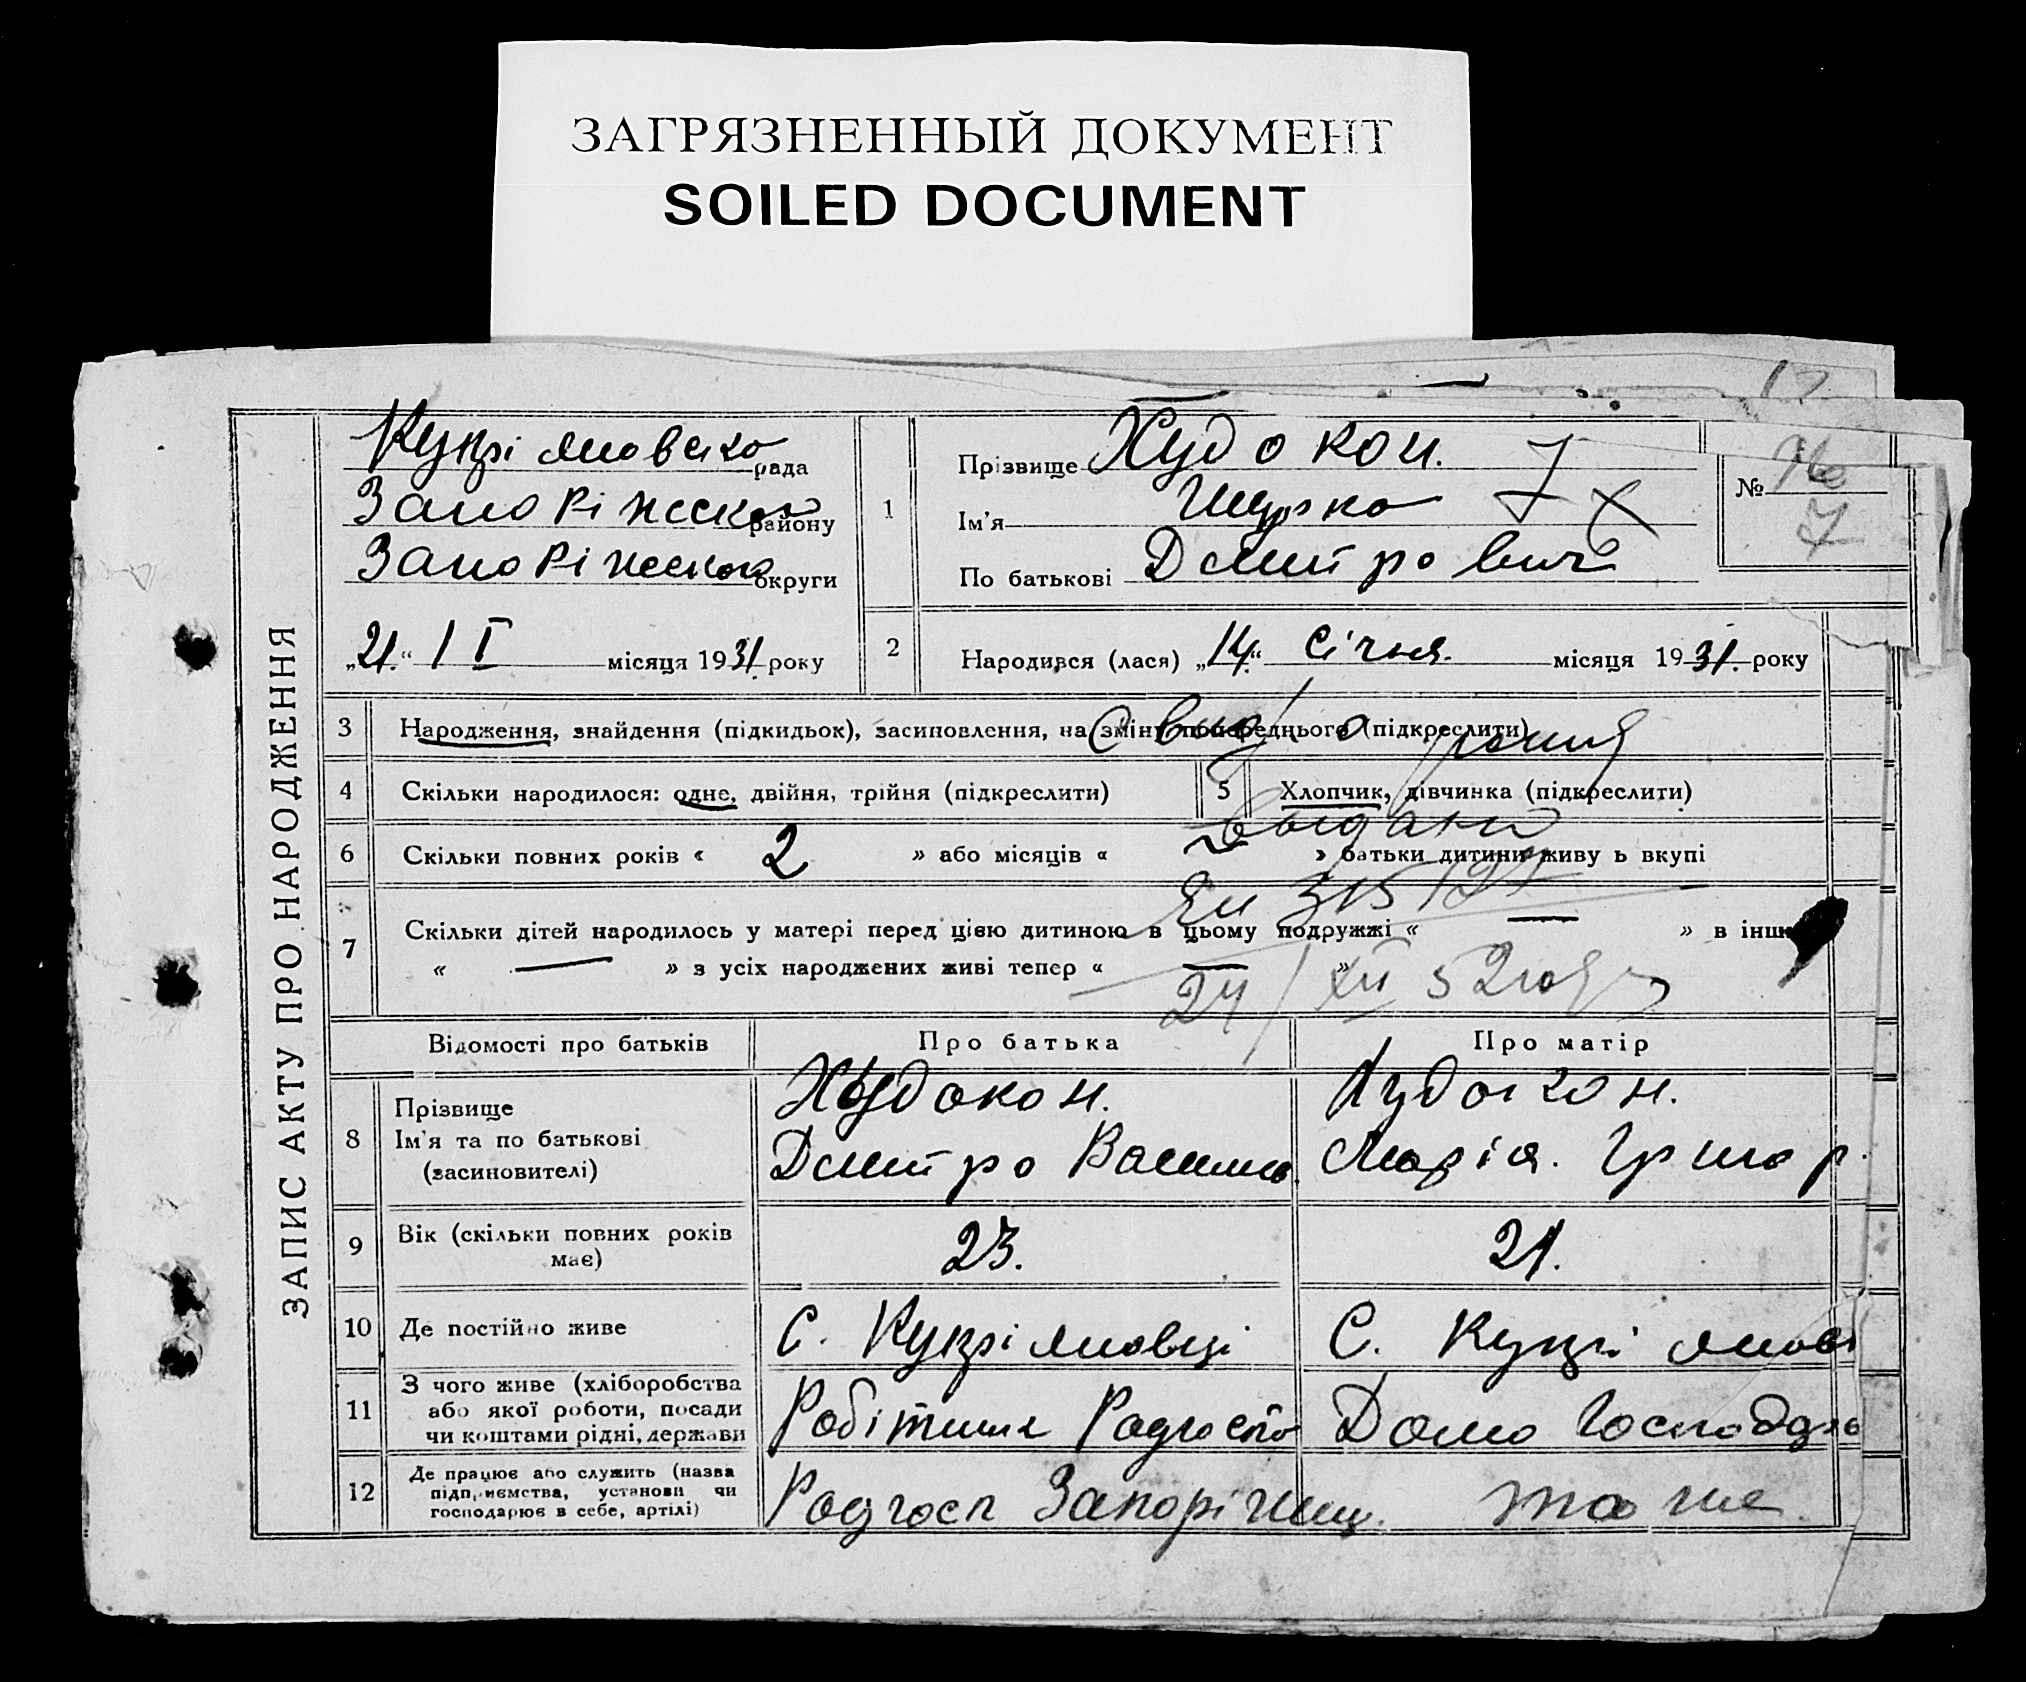 ЗАГРЯЗНЕННЫЙ ДОКУМЕНТ
SOILED DOCUMENT
ЗАПИС АКТУ ПРО НАРОДЖЕННЯ
рада
Запоріжско району
Запоріжско округи
„21“ I місяця 1931. року
1
Прізвище Худокон.
Ім'я Шурко
По батькові Дмитрович
№ 7
7
2
Народився (лася) „14“ Січня. місяця 1931. року
3 Народження, знайдення (підкидьок), засиновлення, на зміну попереднього (підкреслити)
4 Скільки народилося: одне, двійня, трійня (підкреслити)
5 Хлопчик, дівчинка (підкреслити)
6 Скільки повних років « 2 » або місяців « » батьки дитини живу ь вкупі
7 Скільки дітей народилось у матері перед цією дитиною в цьому подружжі « — » в інш
« — » з усіх народжених живі тепер « — »
24/XII 52
Відомості про батьків Про батька Про матір
8 Прізвище
Ім'я та по батькові
(засиновителі)
Худокон.
Дмитро
Худокон.
Марія. Григор.
9 Вік (скільки повних років
має)
23. 21.
10 Де постійно живе
С. Купріяновці С. Купріянов
11 З чого живе (хліборобства
або якої роботи, посади
чи коштами рідні, держави
Робітник Радгоспо Домо Господар
12 Де працює або служить (назва
підприємства, установи чи
господарює в себе, артілі)
Радгосп